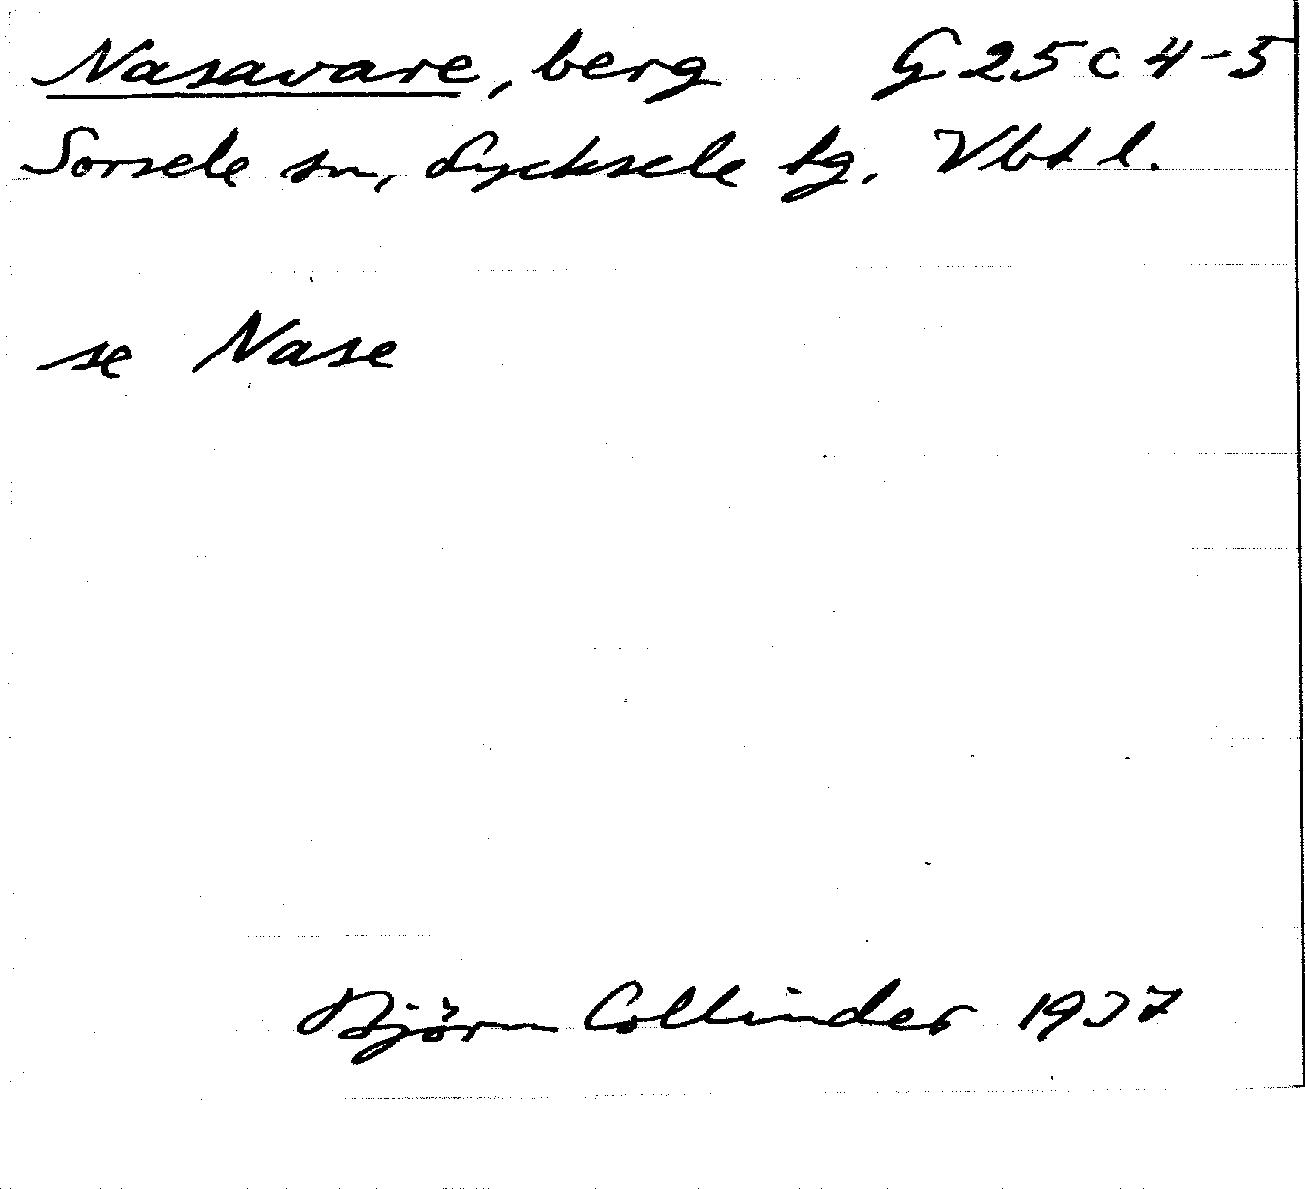 Nasavare, berg G 25 c 4-5
Sorsele sn, Lycksele lg. Vbtl.
se Nase
Björn Collinder 1937